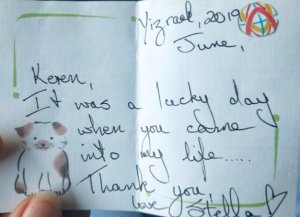 Vizrael, 2019
June,
Keren,
It was a lucky day
when you came
into my life.....
Thank you,
love Stella